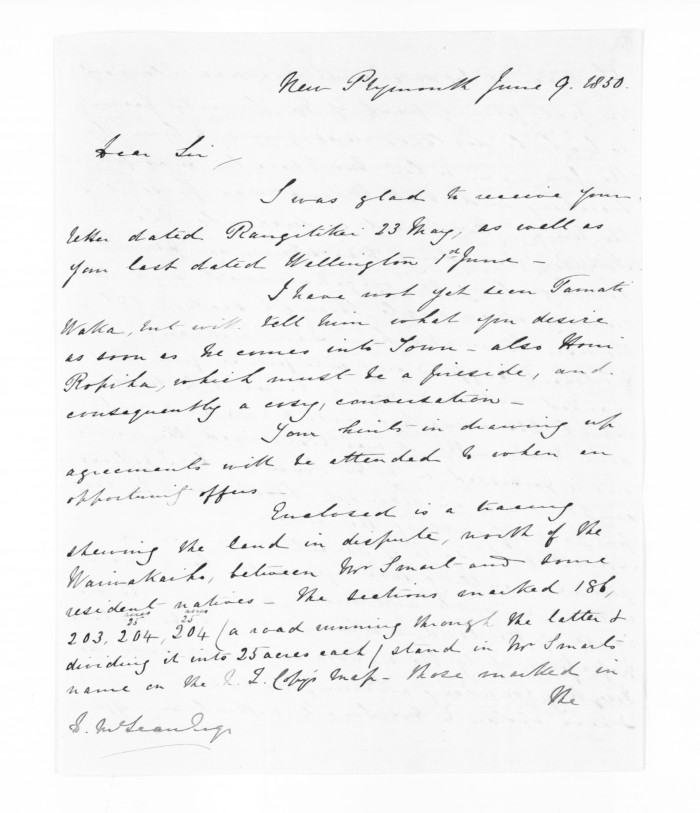 New Plymouth June 9. 1850.
Dear Sir,
I was glad to receive your
letter dated Rangitikei 23 May, as well as
your last dated Wellington 1st June –
I have not yet seen Tamati
Waka, but will tell him what you desire
as soon as he comes into Town – also Honi
Ropiha, which must be a fireside, and
consequently a cosy, conversation –
Your hints in drawing up
agreements will be attended to when an
opportunity offers –
Enclosed is a tracing
shewing the land in dispute, north of the
Waiwakaiho, between Mr Smart and some
resident natives – The sections marked 186,
acres acres
25 25
203, 204, 204 (a road running through the latter &
dividing it into 25 acres each) stand in Mr Smart's
name on the N. Z. Coy's map – those marked in
the
D. McLean Esqr